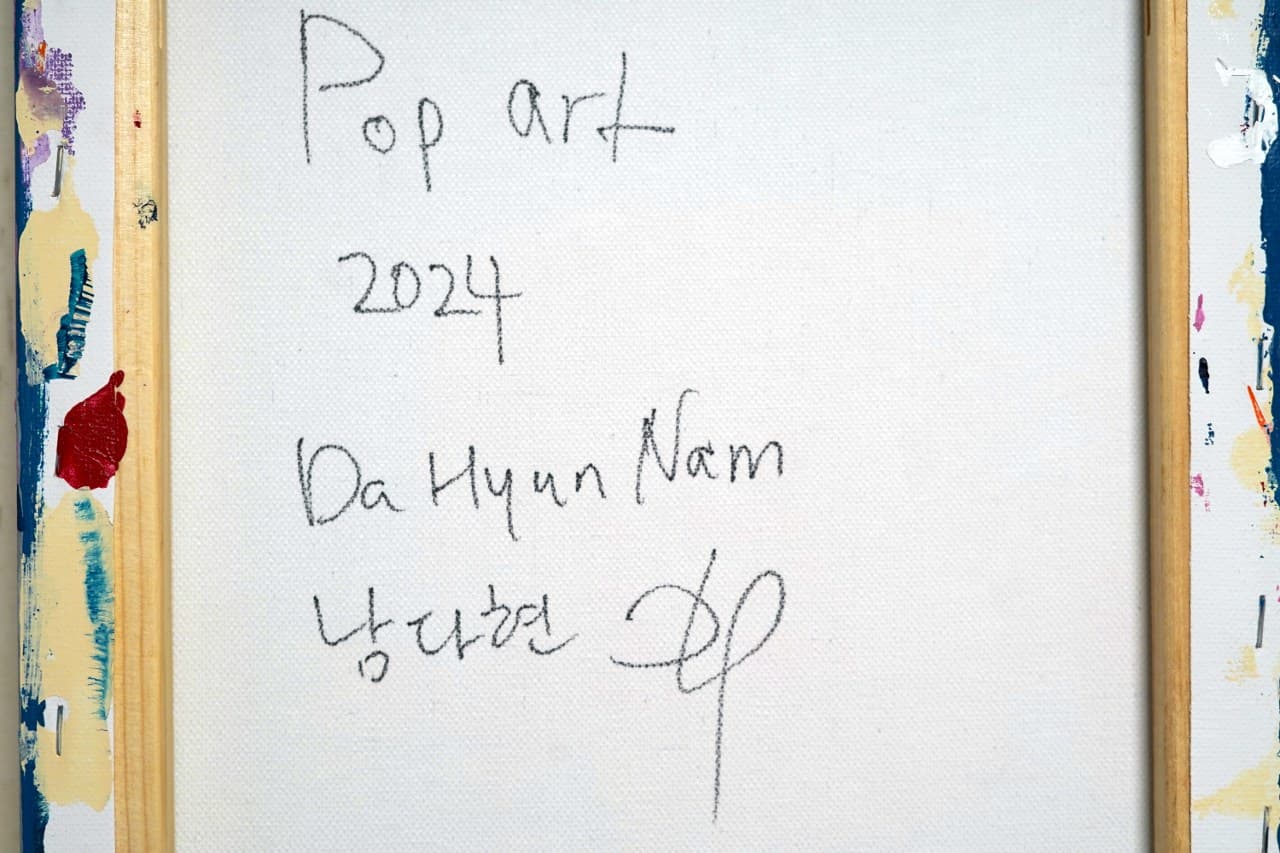 Pop art
2024
Da Hyun Nam
남다현